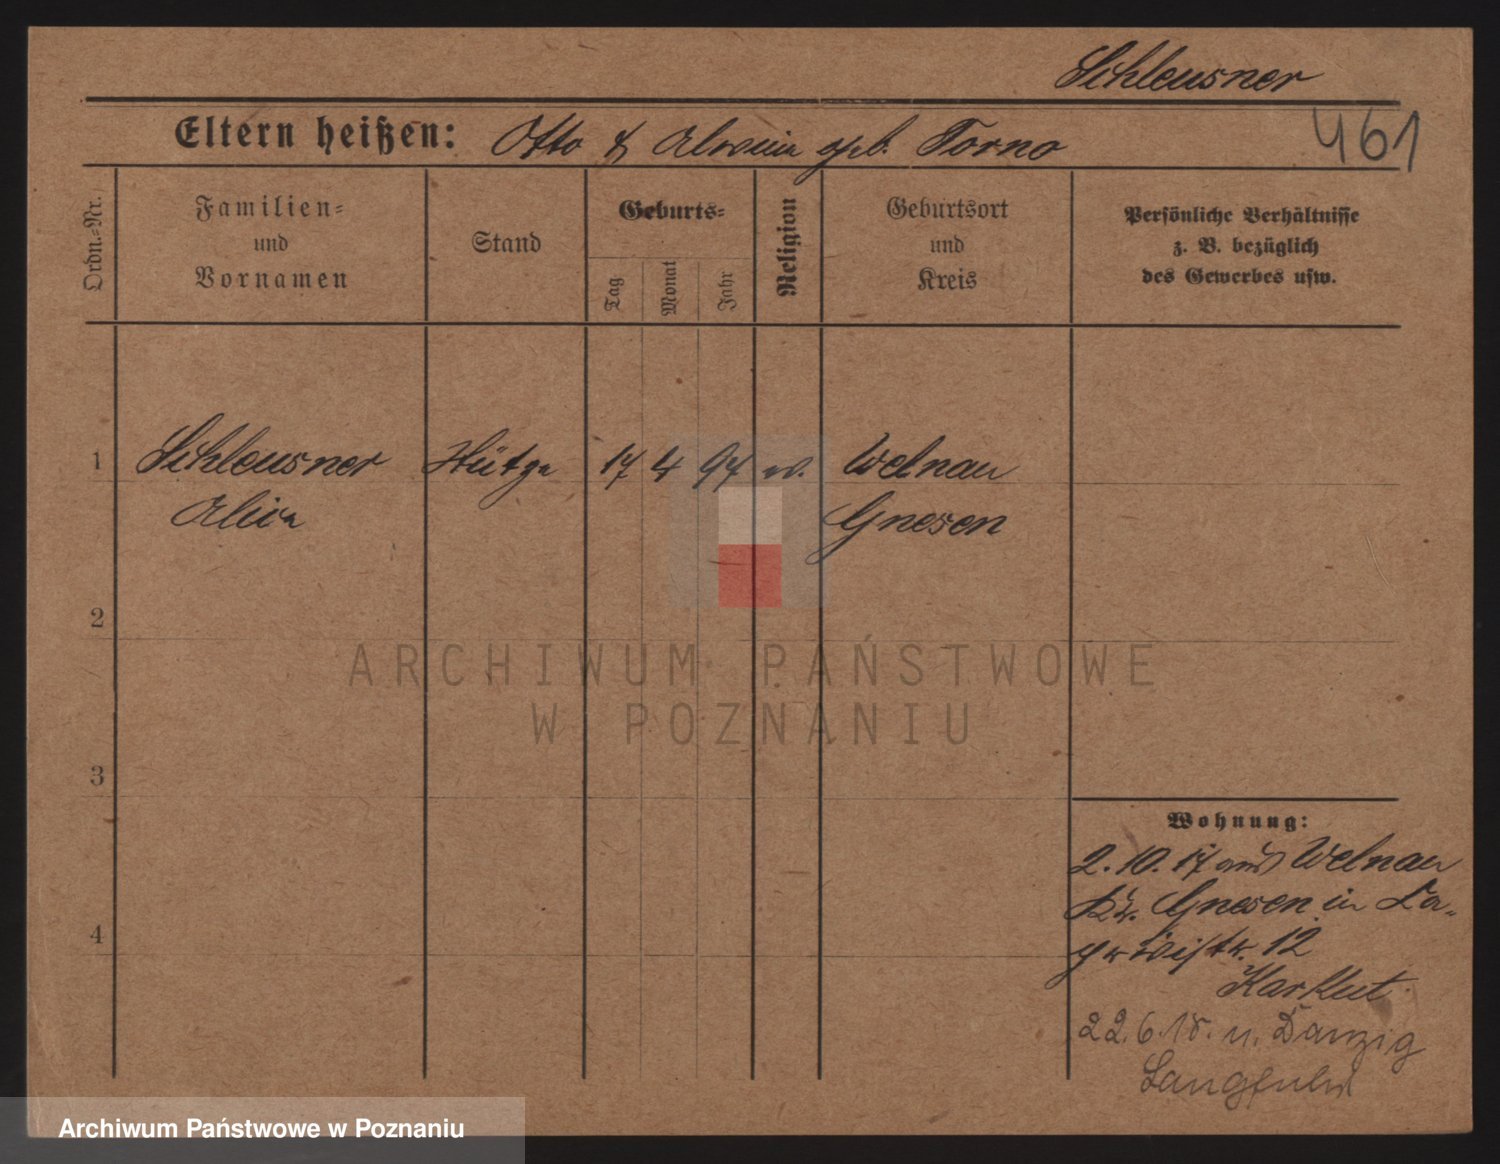 Schleusner
461
Eltern heißen: Otto & Alwine geb. Torno
Ordn.=Nr.
Familien=
und
Vornamen
Stand
Geburts=
Tag
Monat
Jahr
Religion
Geburtsort
und
Kreis
Persönliche Verhältnisse
z. B. bezüglich
des Gewerbes usw.
1
Schleusner 17 4 97 ev. Welnau
Gnesen
2
ARCHIWUM PAŃSTWOWE
W POZNANIU
3
Wohnung:
2.10.17 aus Welnau
Kr. Gnesen in
12
4
22.6.18. n. Danzig
Langfuhr
Archiwum Państwowe w Poznaniu